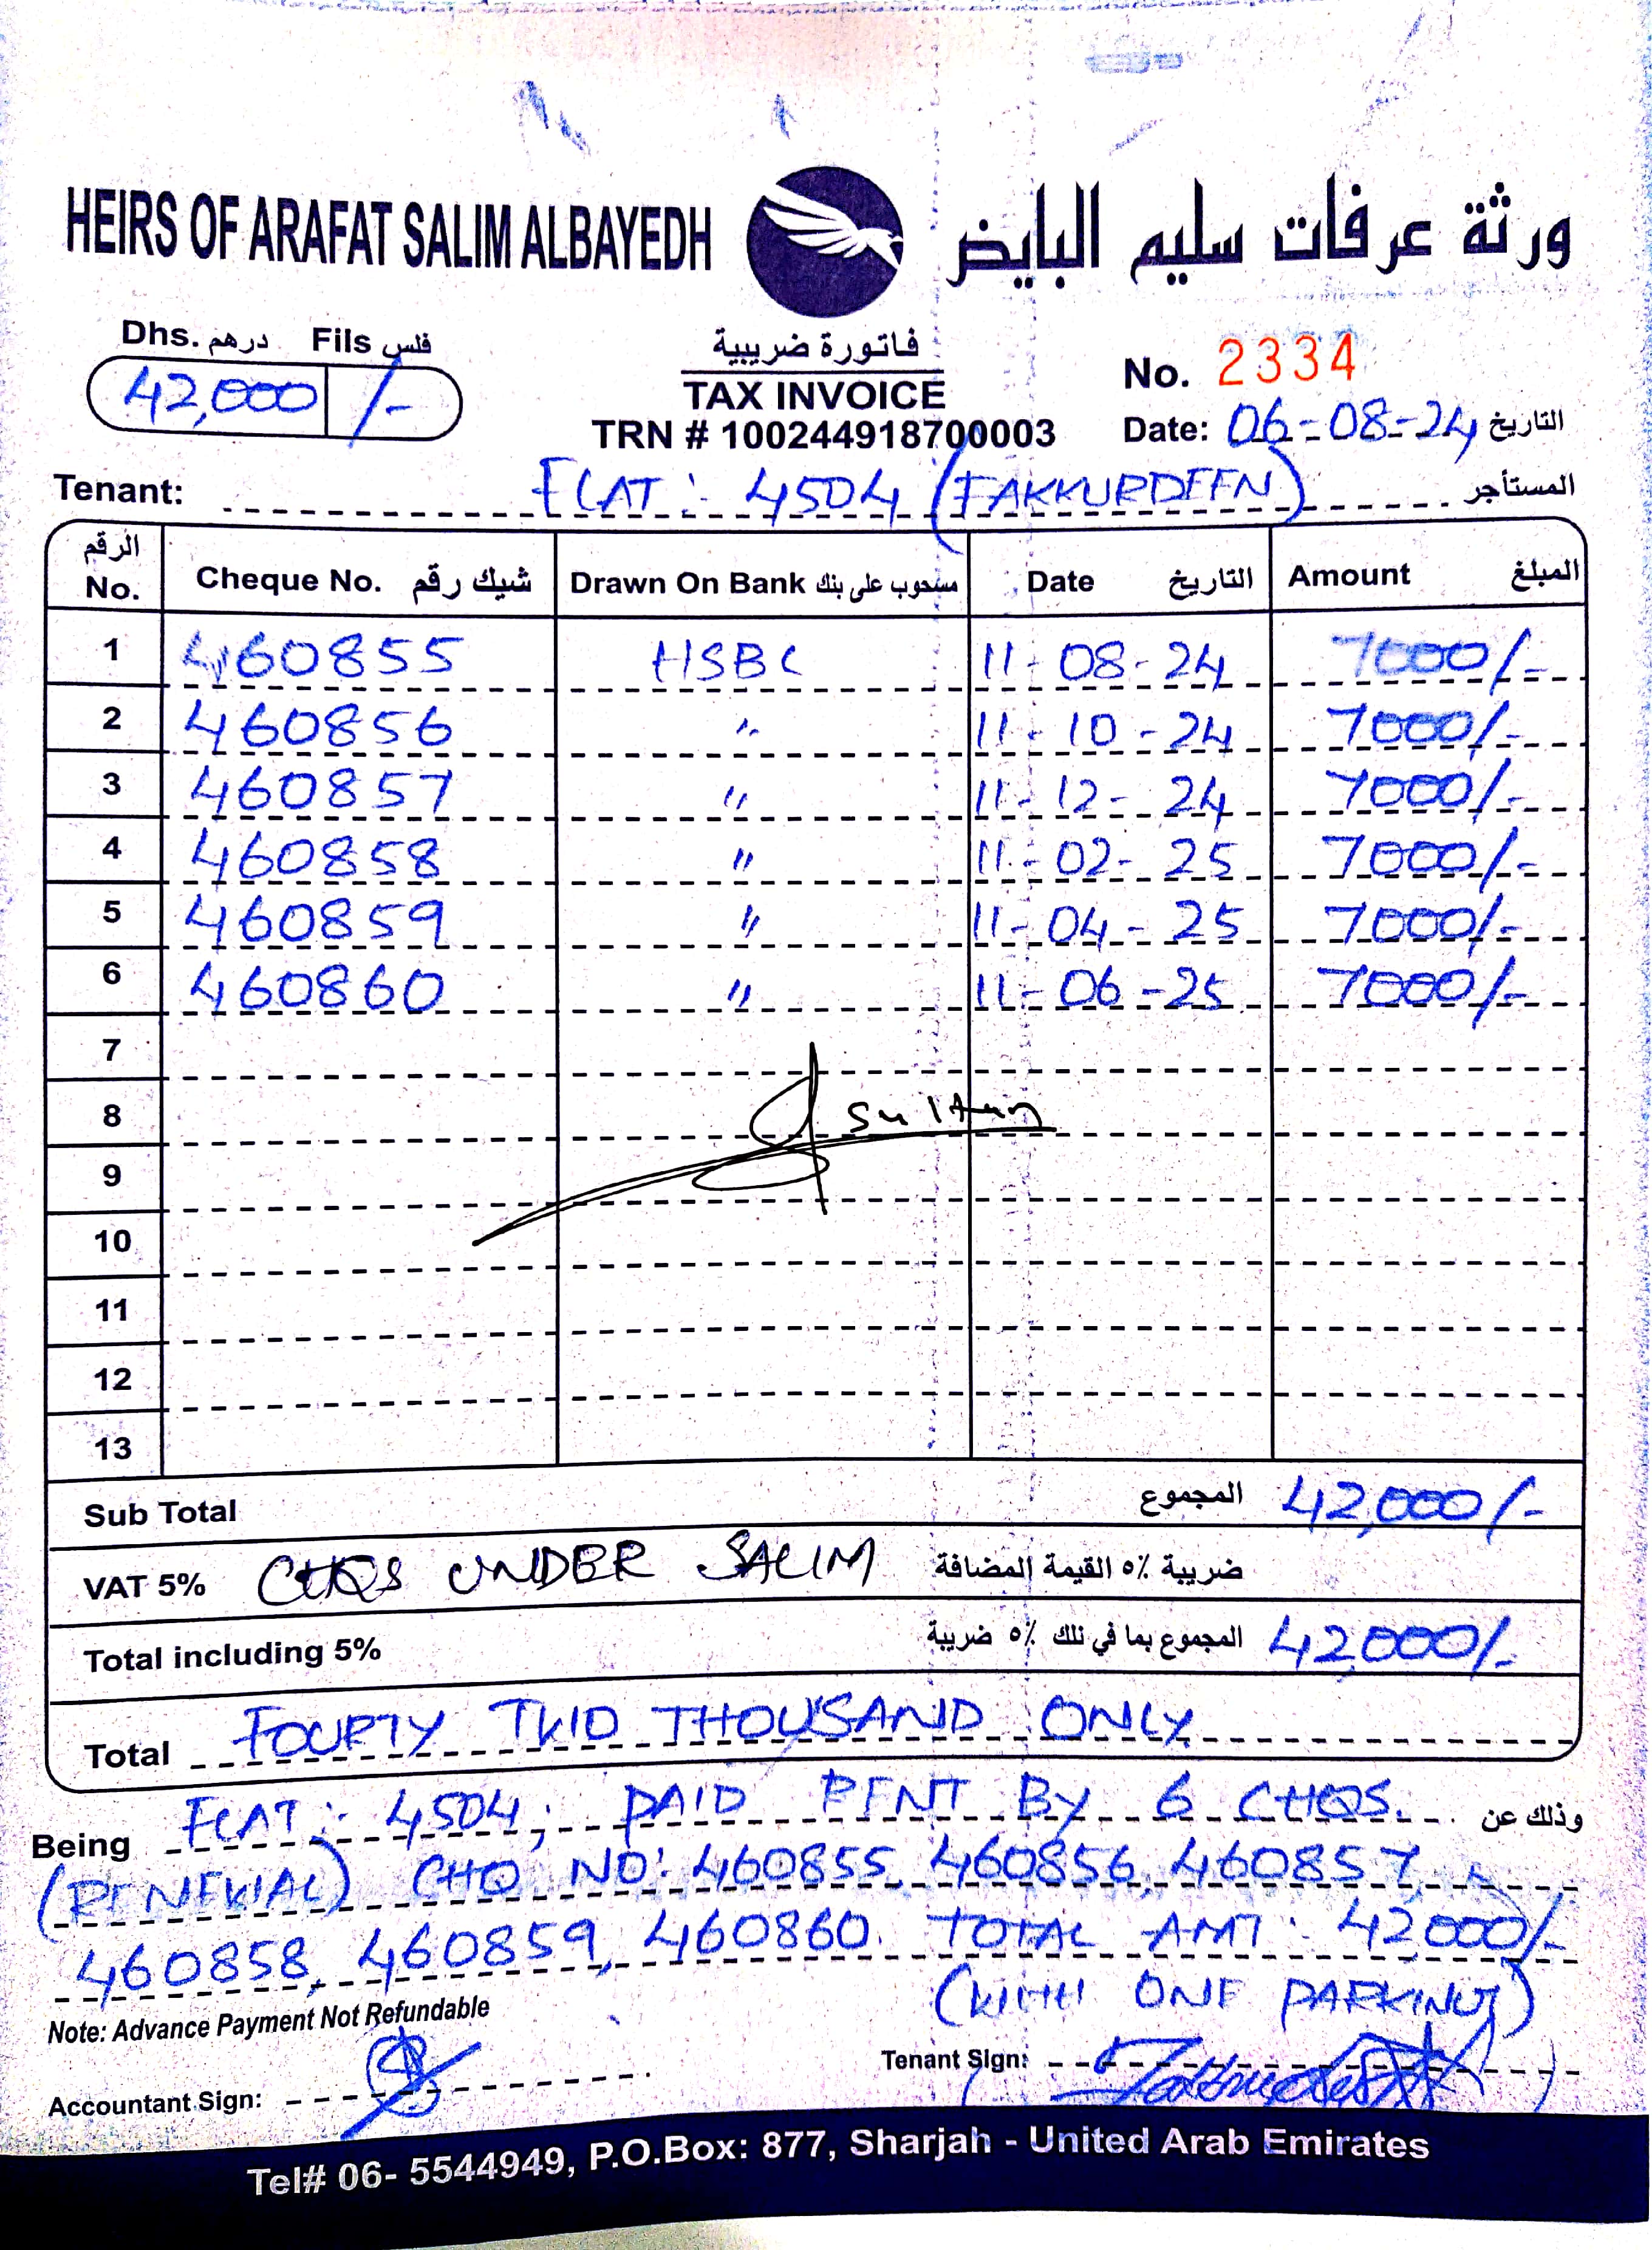 HEIRS OF ARAFAT SALIM ALBAYEDH ورثة عرفات سليم البايض
Dhs. درهم Fils فلس
42,000 /-
فاتورة ضريبية
TAX INVOICE
TRN # 100244918700003
No. 2334
Date: 06-08-24 التاريخ
Tenant: FLAT: 4504 (FAKKURDEEN) المستأجر
الرقم No. Cheque No. شيك رقم Drawn On Bank مسحوب على بنك Date التاريخ Amount المبلغ
1 460855 HSBC 11-08-24 7000/-
2 460856 " 11-10-24 7000/-
3 460857 " 11-12-24 7000/-
4 460858 " 11-02-25 7000/-
5 460859 " 11-04-25 7000/-
6 460860 " 11-06-25 7000/-
7
8 Sultan
9
10
11
12
13
Sub Total المجموع 42,000/-
VAT 5% CHQS UNDER SALIM ضريبة ٥٪ القيمة المضافة
Total including 5% المجموع بما في ذلك ٥٪ ضريبة 42,000/-
Total FOURTY TWO THOUSAND ONLY
Being FLAT: 4504, PAID RENT BY 6 CHQS. وذلك عن
(RENEWAL) CHQ NO: 460855, 460856, 460857,
460858, 460859, 460860. TOTAL AMT: 42,000/-
(WITH ONE PARKING)
Note: Advance Payment Not Refundable
Accountant Sign:
Tenant Sign:
Tel# 06- 5544949, P.O.Box: 877, Sharjah - United Arab Emirates